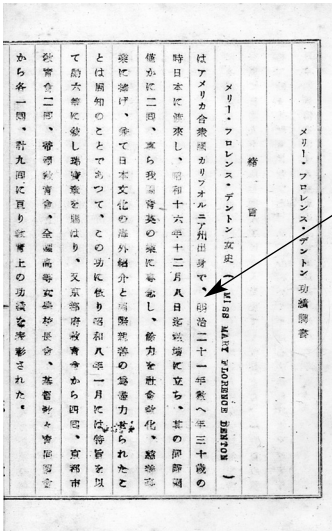 メリー・フロレンス・デントン功績調書
緒言
メリー・フロレンス・デントン女史（MISS MARY FLORENCE DENTON）
はアメリカ合衆国カリフォルニア州出身で、明治二十一年数へ年三十歳の
時日本に渡来し、昭和十六年十二月八日迄教壇に立ち、其の間帰国
僅かに二回、専ら我国育英の業に専念し、余力を社会教化、慈善事
業に捧げ、併て日本文化の海外紹介と国際親善の為尽力せられたこ
とは周知のことであつて、この功に依り昭和八年一月には特旨を以
て勲六等に叙し瑞宝章を賜はり、又京都府教育会から四回、京都市
教育会二回、帝国教育会、全国高等女学校長会、基督教々育同盟会
から各一回、計九回に亘り教育上の功績を表彰された。